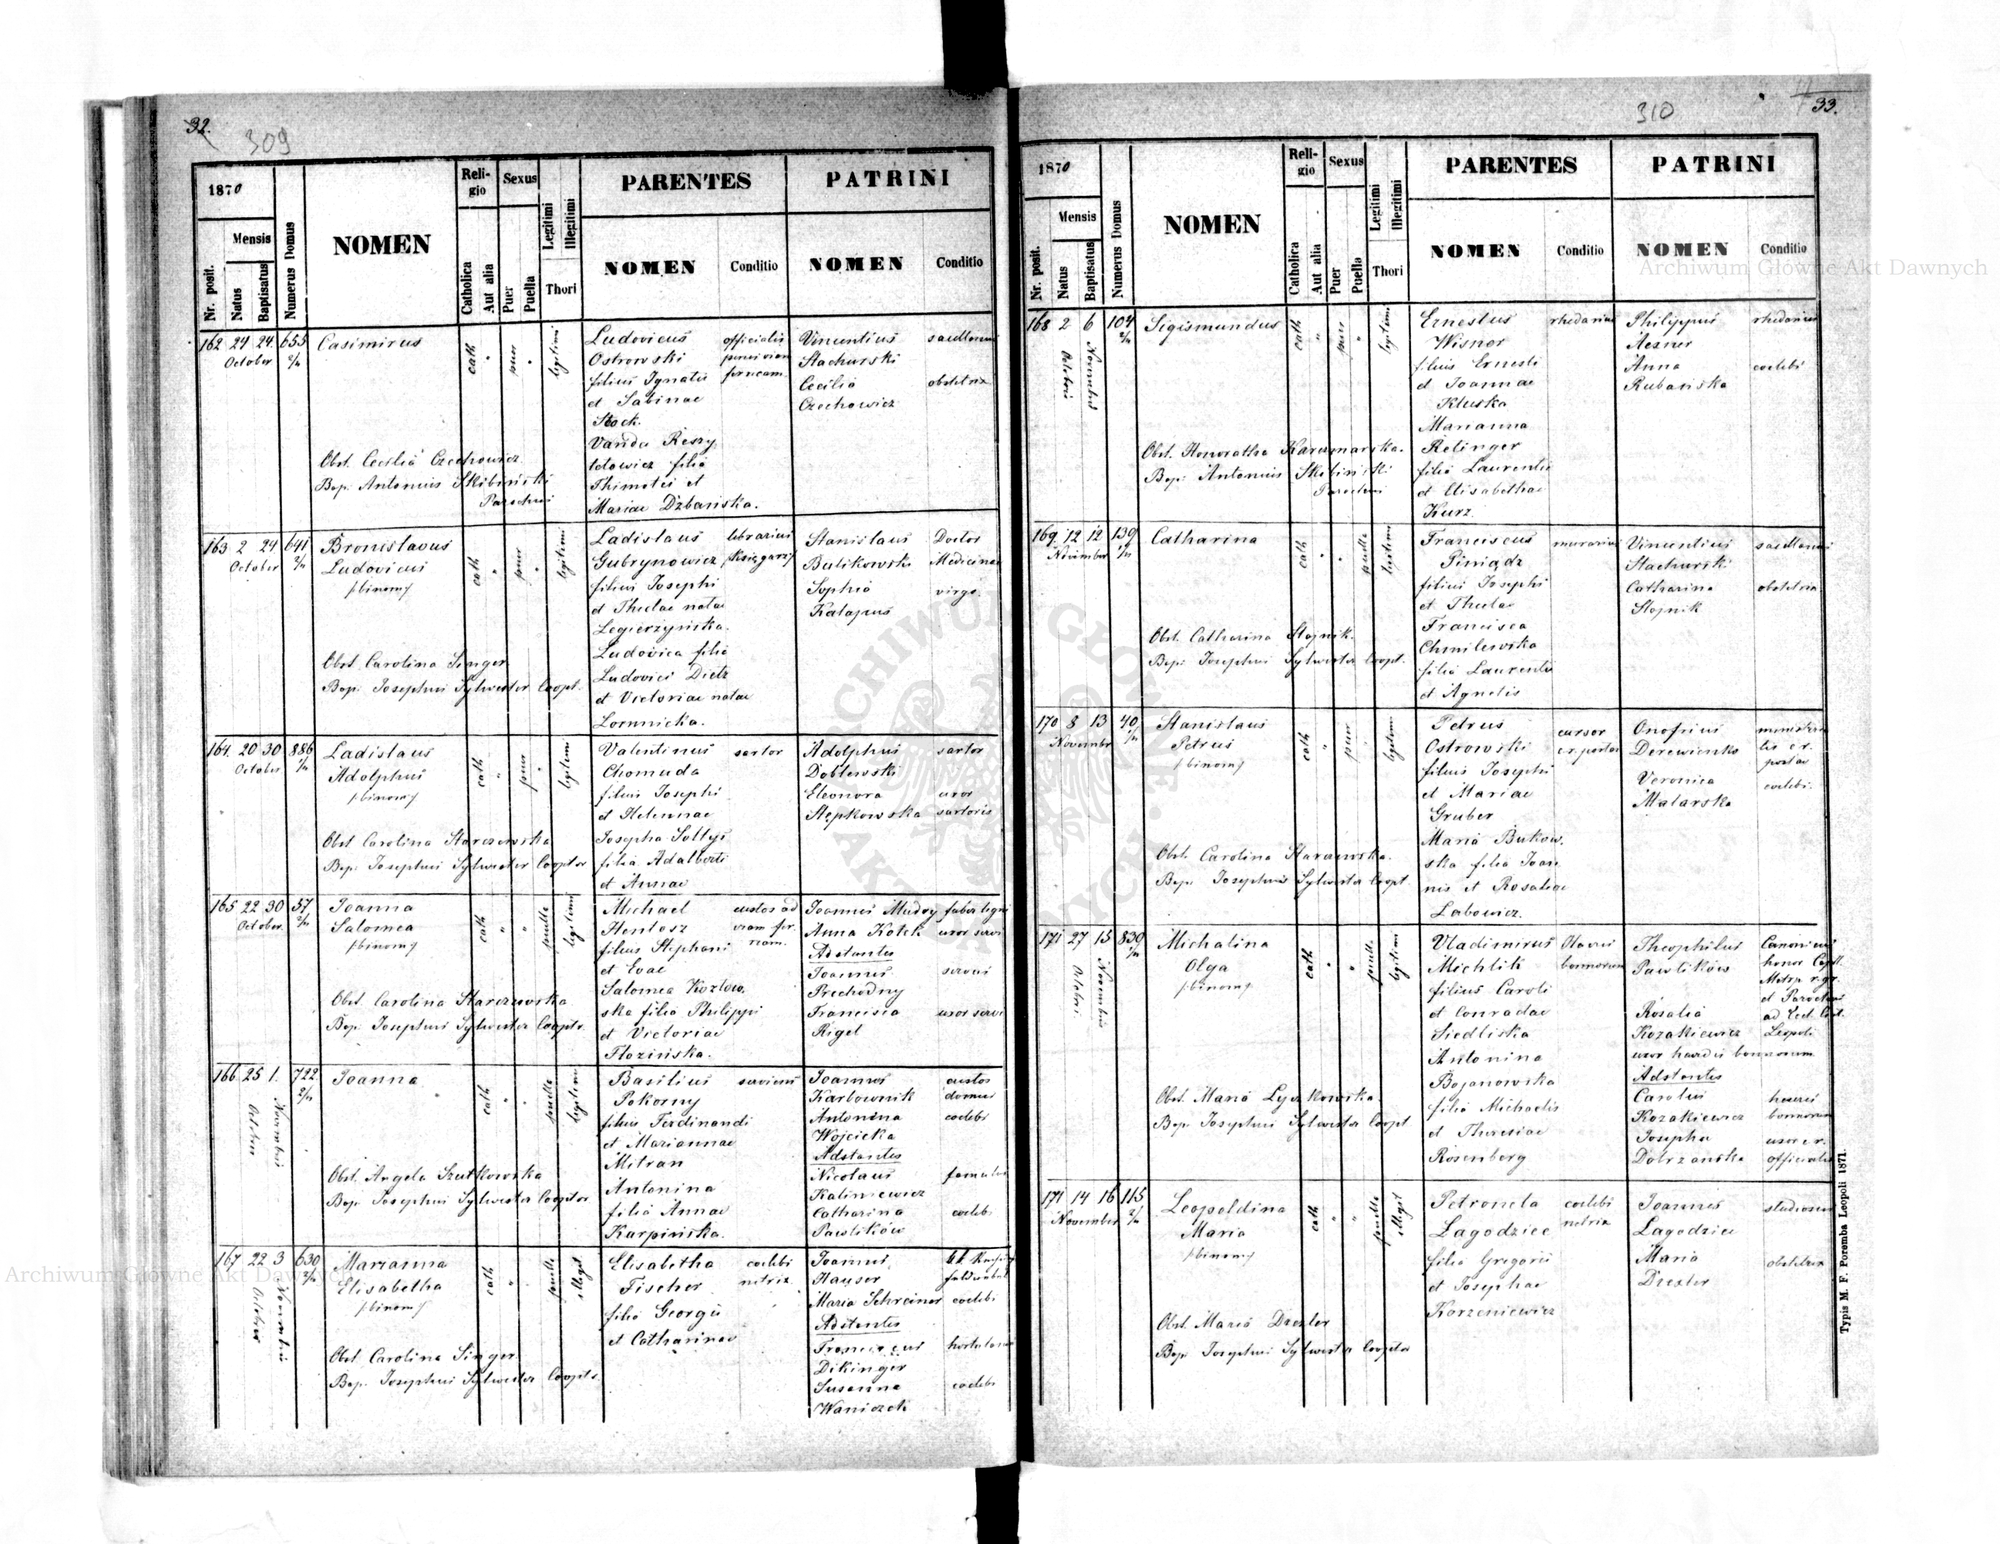 32.
309
1870
Mensis
Nr. posit.
Natus
Baptisatus
Numerus Domus
NOMEN
Religio
Catholica
Aut alia
Sexus
Puer
Puella
Legitimi
Illegitimi
Thori
PARENTES
NOMEN
Conditio
PATRINI
NOMEN
Conditio
162 24 24 655 2/4
October
Casimirus
cath " puer " legitimi
Ludovicus
Ostrowski
filius Ignatii
et Sabinae
Stock.
Vanda Reszy
tełowicz filia
Thimotei et
Mariae Dzbańska.
officialis
penes viam
ferream
Vincentius
Stachurski
Cecilia
Czechowicz
obstetrix
Obst. Cecilia Czechowicz
Bap: Antonius Skibiński
Parochus
163 2 24 641 2/4
October
Bronislavus
Ludovicus
(binom)
cath " puer " legitimi
Ladislaus
Gubrynowicz
filius Josephi
et Theclae natae
Legierzyńska.
Ludovica filia
Ludovici Dietz
et Victoriae natae
Lomnicka.
librarius
(księgarz)
Stanislaus
Bulikowski
Sophia
Kalapus
Doctor
Medicinae
virgo.
Obst. Carolina Singer
Bap: Josephus Sylwester Coopt.
164 20 30 886
October
Ladislaus
Adolphus
(binom)
cath " puer " legitimi
Valentinus
Chomuda
filius Josephi
et Helennae
Josepha Soltys
filia Adalberti
et Annae
sartor
Adolphus
Doblewski
Eleonora
Stępkowska
sartor
uxor
sartoris
Obst Carolina Starczewska
Bap: Josephus Sylwester Cooptor
165 22 30 57
October
Joanna
Salomea
(binom)
cath " " puella legitimi
Michael
Hentosz
filius Stephani
et Evae
Salomea Kozłow,
ska filia Philippi
et Victoriae
Flozińska.
custos ad
viam fer,
ream.
Joannes Mudry faber ligni
Anna Kotek uxor servi
Adstantes
Joannes
Prechodny
Francisia
Rigel
servus
uxor servi
Obst. Carolina Starczewska
Bap. Josephus Sylwester Cooptr.
166 25 1. 722 2/4
Octobris
Novembris
Joanna
cath " " puella legitimi
Basilius
Pokorny
filius Ferdinandi
et Mariannae
Mitran
Antonina
filia Annae
Karpińska.
serviens
Joannes
Karbownik
Antonina
Wojcicka
Adstantes
Nicolaus
Kaliniewicz
Catharina
Pawlików
custos
domus
coelebs
famulus
coelebs
Obst. Angela Szutkowska
Bap. Josephus Sylwester Cooptor
167 22 3 630 2/4
Octobris
Novembris
Marianna
Elisabetha
(binom)
cath " " puella illegit
Elisabetha
Fischer
filia Georgii
et Catharinae
coelebs
netrix
Joannes
Hauser
Maria Schreiner
Adstantes
Franciscus
Dikinger
Susanna
Waniczek
coelebs
hortulanus
coelebs
Obst Carolina Singer
Bap. Josephus Sylwester Cooptr.
33.
310
1870
Mensis
Nr. posit.
Natus
Baptisatus
Numerus Domus
NOMEN
Religio
Catholica
Aut alia
Sexus
Puer
Puella
Legitimi
Illegitimi
Thori
PARENTES
NOMEN
Conditio
PATRINI
NOMEN
Conditio
168 2 6 104 2/4
Octobris
Novembris
Sigismundus
cath " puer " legitimi
Ernestus
Wisner
filius Ernesti
et Joannae
Kluska
Marianna
Relinger
filia Laurentii
et Elisabethae
Kurz.
rhedarius
Philippus
Aexner
Anna
Rubańska
rhedarius
coelebs
Obst. Honoratha Karczmarska.
Bap: Antonius Skibiński
Parochus
169. 12 12 139
November
Catharina
cath " " puella legitimi
Franciscus
Piniądz
filius Josephi
et Theclae
Francisca
Chmilewska
filia Laurentii
et Agnetis
murarius
Vincentius
Stachurski
Catharina
Stojnik
obstetrix
Obst. Catharina Stojnik.
Bap: Josephus Sylwester Coopt.
170 8 13 40
November
Stanislaus
Petrus
(binom)
cath " puer " legitimi
Petrus
Ostrowski
filius Josephi
et Mariae
Gruber
Maria Bukow,
ska filia Joan
nis et Rosaliae
Labowicz.
cursor
c.r. postae
Onofrius
Derewienko
Veronica
Malarska
ministeria
lis c.r.
postae
coelebs.
Obst. Carolina Starczewska.
Bap. Josephus Sylwester Coopt
171 27 15 839
Octobris.
Novembris
Michalina
Olga
(binom)
cath " " puella legitimi
Vladimirus
Michlik
filius Caroli
et Conradae
Siedliska
Antonina
Bojanowska
filia Michaelis
et Theresiae
Rosenberg
bonnorum
Theophilus
Pawlików
Rosalia
Kozakiewicz
uxor haeredis bonnorum
Adstantes
Carolus
Kozakiewicz
Josepha
Dobrzańska
Canonicus
honor Capit.
Metrp r. gr.
et Parochus
Leopoli
haeres
bonnorum
uxor c.r.
officialis
Obst. Maria Lyczkowska
Bap. Josephus Sylwester Coopt
171 14 16 115 2/4
November
Leopoldina
Maria
(binom)
cath " " puella illegit
Petronela
Lagodziec
filia Gregorii
et Josephae
Korzeniewicz
coelebs
netrix
Joannes
Lagodziec
Maria
Drexler
studiosus
obstetrix
Obst. Maria Drexler
Bap. Josephus Sylwester Cooptor
Typis M. F. Poremba Leopoli 1871.
Archiwum Główne Akt Dawnych
Archiwum Główne Akt Dawnych
ARCHIWUM GŁÓWNE AKT DAWNYCH